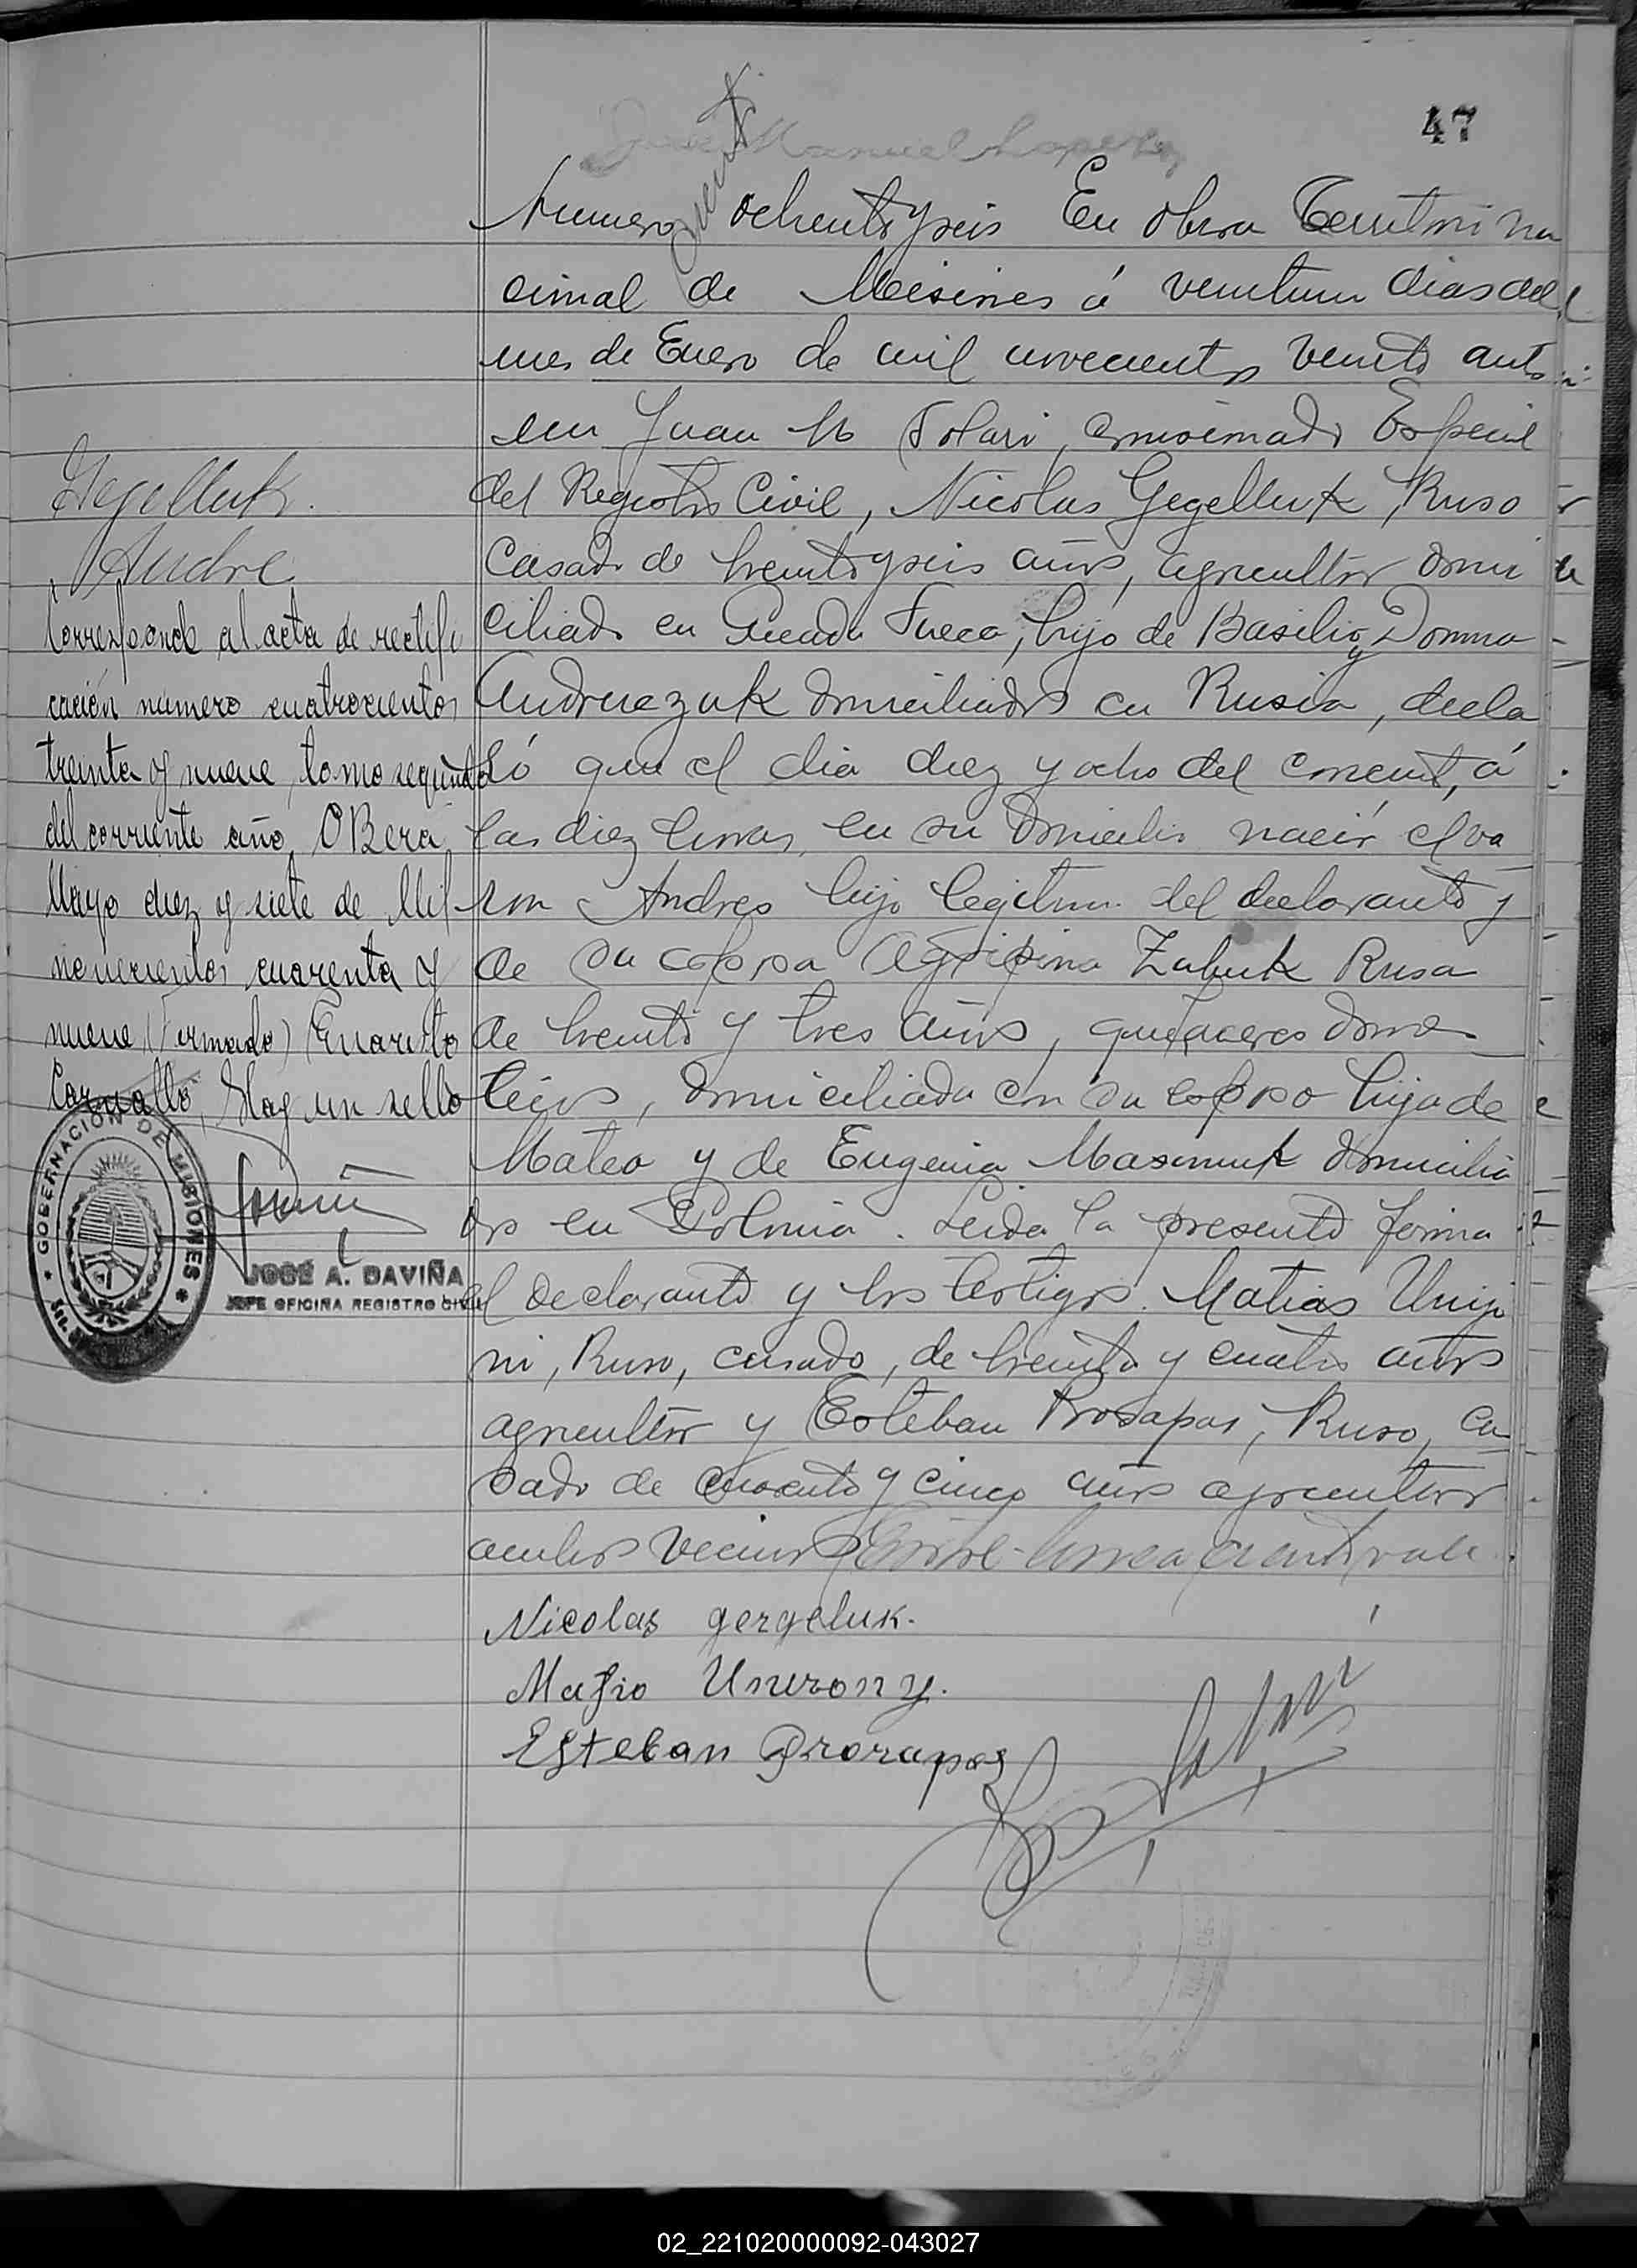 47
Numero ochenta y seis En Obera Territorio Na
cional de Misiones á veintiun dias del
mes de Enero de mil novecientos treinta ante
mi Juan Solari, comisionado Especial
Gegelluk.
Andre
del Registro Civil, Nicolas Gegelluk, Ruso
Casado de treinta y seis años, agricultor domi
ciliado en Picada Sueca, hijo de Basilio y Domna
Andruczuk domiciliados en Rusia, decla
ró que el dia diez y ocho del corriente, á
las diez horas, en su domicilio nació el va
ron Andres hijo legitimo del declarante y
de su esposa Agripina Zabuk Rusa
de treinta y tres años, quehaceres domes
ticos, domiciliada con su esposo hija de
Mateo y de Eugenia domicilia
dos en Polonia. Leida la presente firma
el declarante y los testigos Matias
ni, Ruso, casado, de treinta y cuatro años
agricultor y Esteban Prosapas, Ruso, ca
sado de cuarenta y cinco años agricultor
ambos vecinos Entre-linea ciento vale
Corresponde al acta de rectifi
cación numero cuatrocientos
treinta y nueve, tomo segundo
del corriente año, OBera
Mayo diez y siete de Mil
novecientos cuarenta y
nueve (Firmado) Evaristo
Carvallo, Hay un sello
GOBERNACION DE MISIONES
JOSÉ A. DAVIÑA
JEFE OFICINA REGISTRO CIVIL
Nicolas gergeluk.
Esteban Prorapas
02_221020000092-043027